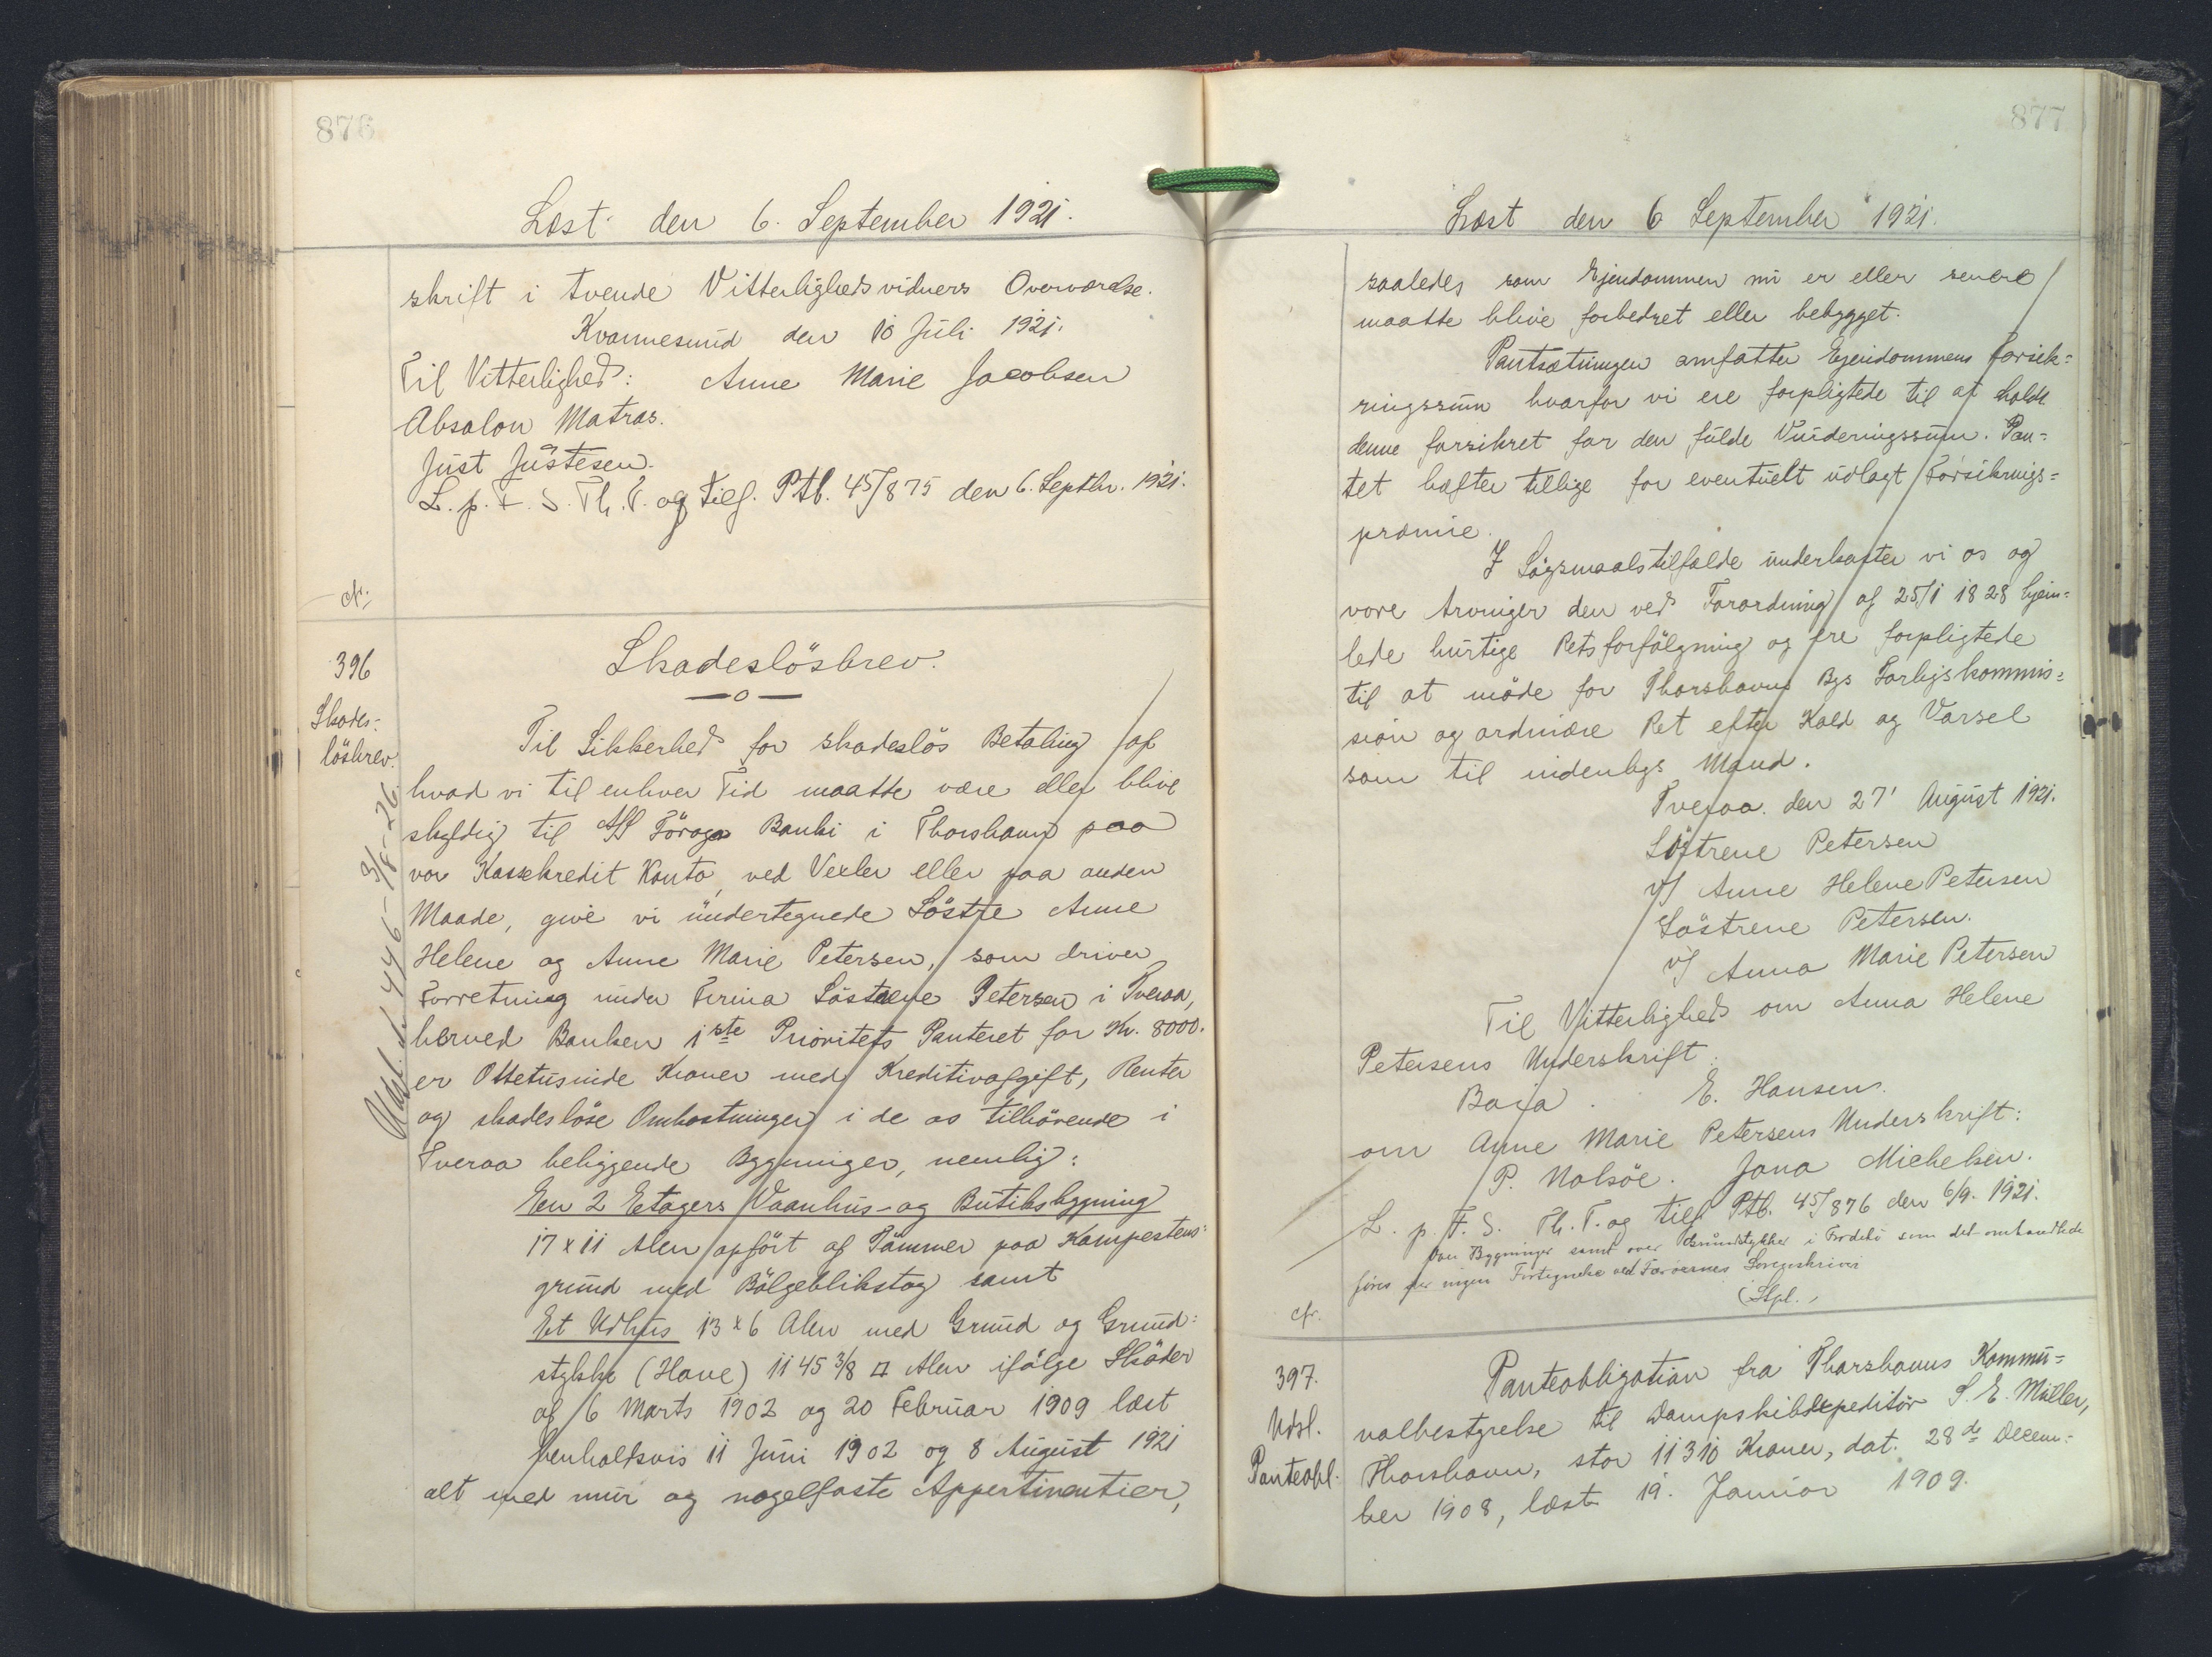 876
Læst den 6. September 1921.
skrift i tvende Vitterlighedsvidners Overværelse.
Kvannesund den 10 Juli 1921.
Til Vitterlighed: Anne Marie Jacobsen
Absalon Matras.
Just Justesen.
L. p. F. S. Th. T. og tilf. Ptb. 45/875 den 6. Septbr. 1921.
cfr.
396
Skades-
lösbrev.
Skadeslösbrev.
Til Sikkerhed for skadeslös Betaling af
hvad vi til enhver Tid maatte være eller blive
skyldig til A/S Föroya Banki i Thorshavn paa
vor Kassekredit Konto, ved Vexler eller paa anden
Maade, give vi undertegnede Söstre Anne
Helene og Anne Marie Petersen, som driver
Forretning under Firma Söstrene Petersen i Tveraa,
herved Banken 1ste Prioritets Panteret for Kr. 8000.
er Ottetusinde Kroner med Kreditivafgift, Renter
og skadeslöse Omkostninger i de os tilhörende i
Tveraa beliggende Bygninger, nemlig:
En 2 Etagers Vaanhus- og Butiksbygning
17 x 11 Alen opfört af Tömmer paa Kampestens-
grund med Bölgebliktag samt
Et Udhus 13 x 6 Alen med Grund og Grund-
stykke (Have) 1145 3/8 □ Alen ifölge Sköder
af 6 Marts 1902 og 20 Februar 1909 læst
henholdsvis 11 Juni 1902 og 8 August 1921
alt med mur og nagelfaste Appertinentier,
Udsl. 446 - 3/8 - 26
877
Læst den 6 September 1921.
saaledes som Ejendommen nu er eller senere
maatte blive forbedret eller bebygget.
Pantsætningen omfatter Ejendommens Forsik-
ringssum hvorfor vi ere forpligtede til at holde
denne forsikret for den fulde Vurderingssum. Pan-
tet hæfter tillige for eventuelt udlagt Forsikrings-
præmie.
I Sögsmaalstilfælde underkaster vi os og
vore Arvinger den ved Forordning af 25/1 1828 hjem-
lede hurtige Retsforfölgning og ere forpligtede
til at möde for Thorshavns Bys Forligskommis-
sion og ordinære Ret efter Kald og Varsel
som til indenbys Mand.
Tveraa. den 27' August 1921.
Söstrene Petersen
v/ Anne Helene Petersen
Söstrene Petersen.
v/ Anna Marie Petersen
Til Vitterlighed om Anna Helene
Petersens Underskrift:
Baja . E. Hansen.
om Anne Marie Petersens Underskrift:
P. Nolsöe. Jona Michelsen.
L. p. F. S. Th. T. og tilf. Ptb. 45/876 den 6/9. 1921.
Over Bygninger samt over Grundstykker i Frodebö som det omhandlede
föres der ingen Fortegnelse ved Færöernes Sorenskriveri
(Stpl.)
cfr.
397.
Udsl.
Panteobl.
Panteobligation fra Thorshavns Kommu-
nalbestyrelse til Dampskibsexpeditör S. E. Müller,
Thorshavn, stor 11310 Kroner, dat. 28de Decem-
ber 1908, læst 19. Januar 1909.